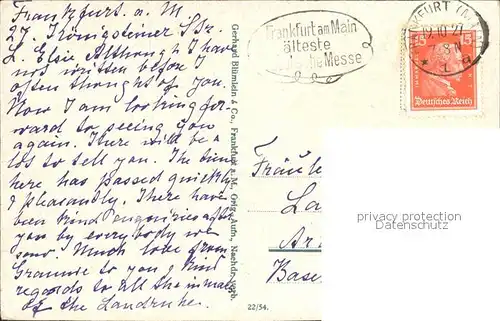 Frankfurt a. M
27. Königsteiner Str.
L. Elsie Although I have
not written before I
often thought of you.
Now I am looking for-
ward to seeing you
again. There will be a
lot to tell you. The time
here has passed quickly
& pleasantly. There have
been kind enquiries after
you by everybody we
saw. Much love from
Grannie to you & kind
regards to all the inmates
of the Landruhe.
Gerhard Blümlein & Co., Frankfurt a. M., Orig.-Aufn., Nachdr. verb.
22/34.
Frankfurt am Main
älteste
Messe
FRANKFURT (MAIN)
12.10.27
7-8 N
15
Deutsches Reich
Fräule
La
Ar
Base
privacy protection
Datenschutz